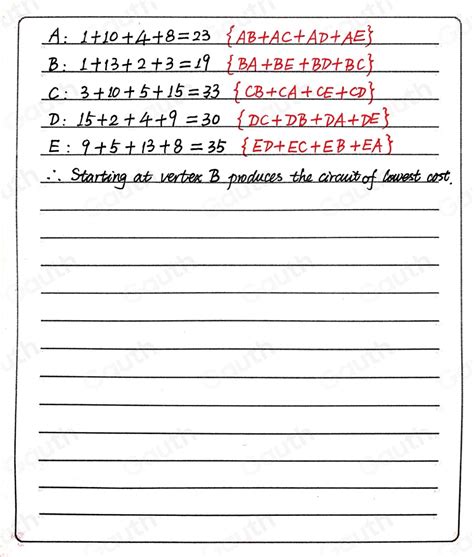 A: 1+10+4+8=23 {AB+AC+AD+AE}
B: 1+13+2+3=19 {BA+BE+BD+BC}
C: 3+10+5+15=33 {CB+CA+CE+CD}
D: 15+2+4+9=30 {DC+DB+DA+DE}
E: 9+5+13+8=35 {ED+EC+EB+EA}
∴ Starting at vertex B produces the circuit of lowest cost.